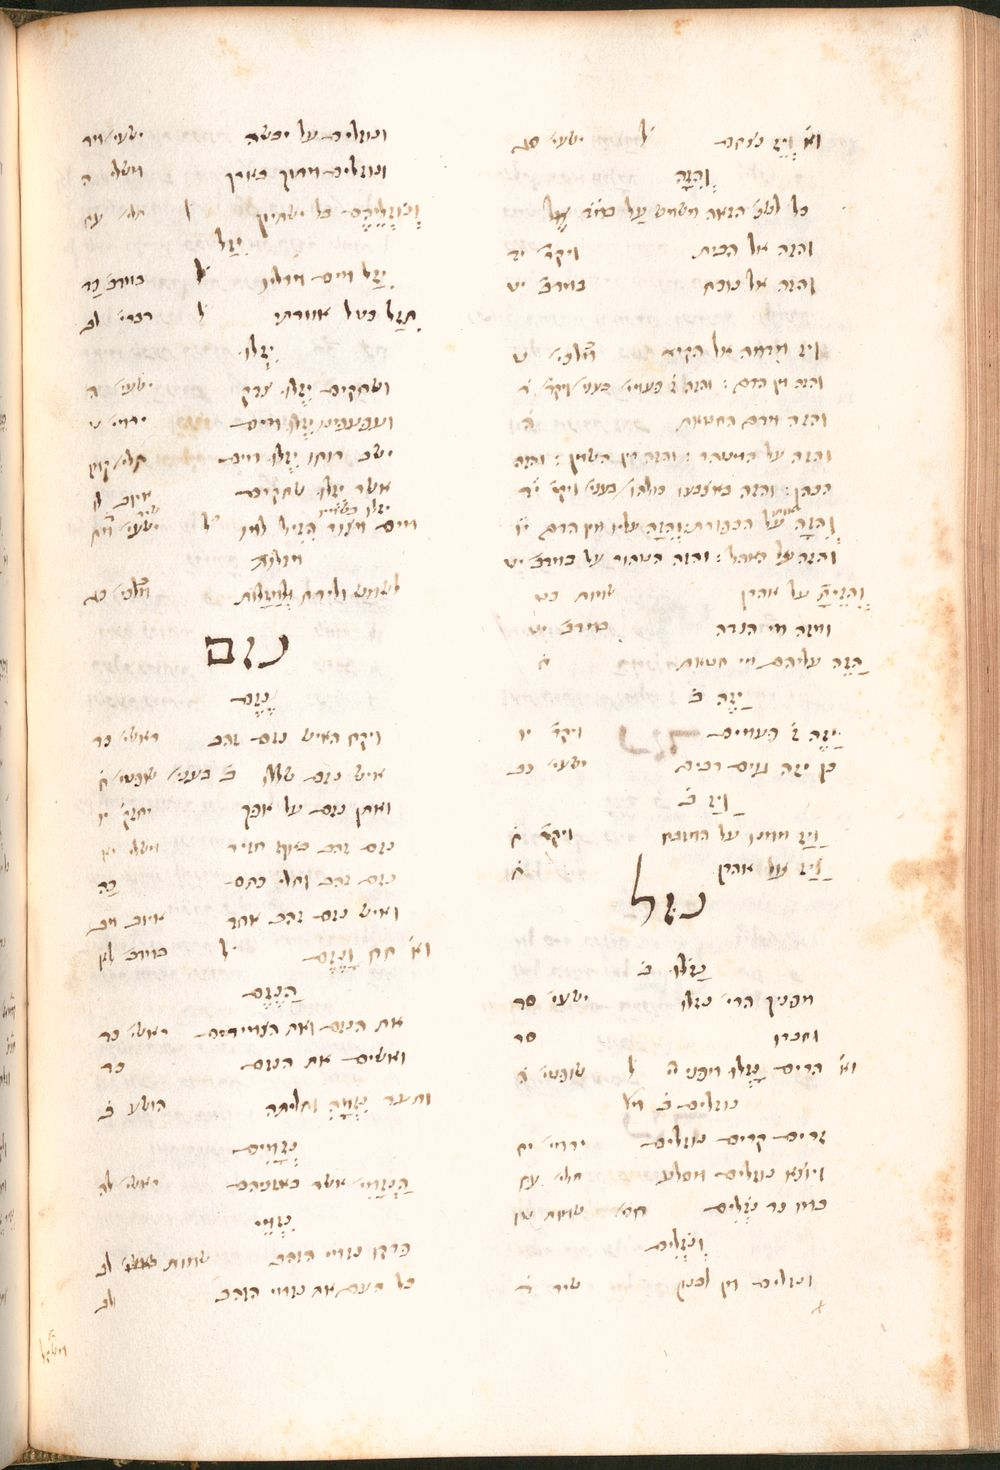 וא׳ וְיֵז נצחם ל׳ ישעי׳ סג
וְהִזָּה
כל לשׁ׳ הזאה
והזה אל הבית ויקר׳ יד
והזה אל נוכח במדב׳ יט
ויז מדמה אל הקיר מלכי׳ ט
והזה מן הדם
והזה מדם החטאת ה׳
והזה על המטהר : והזה מן השמן : והזה
הכהן : והזה באצבעו
וְהִזָּה על הכפורת
והזה על האהל : והזה הטהור על במדב׳ יט
וְהִזֵּיתָ על אהרן שמות כט
ומזה מי הנדה במדב׳ יט
הַזֵּה עליהם מי חטאת ח׳
יַזֶּה ב׳
יַזֶּה ז׳ פעמים ויקר׳ יו
כן יזה גוים רבים ישעי׳ נב
וַיַּז ב׳
וַיַּז ממנו על המזבח ויקר׳ ח׳
וַיַּז על אהרן ח׳
נזל
נָזֹלּוּ ב׳
מפניך הרי׳ נזלו ישעי׳ סד
וחברו סד
וא׳ הרים נָזְלוּ מפני ה׳ ל׳ שופטי׳ ה׳
נוזלים ב׳ מל׳
זרים קרים נוזלים ירמי׳ יח
ויוצא נוזלים מסלע תלי׳ עח
כמו נד נֹזְלִים חס׳ שמות טו
וְנֹזְלִים
ונוזלים מן לבנון שיר ד׳
ונוזלים על יבשה ישעי׳ מד
ונוזלים מתוך בארך משלי ה
וְנֹזְלֵיהֶם בל ישתיון ל׳ תלי׳ עח
יִזַּל
יִזַּל מים מדליו ל׳ במדב׳ כד
תִּזַּל כטל אמרתי ל׳ דברי׳ לב
יִזְּלוּ
ושחקים יִזְּלוּ צדק ישעי׳ מה
ועפעפינו יִזְּלוּ מים ירמי׳ ט
ישב רוחו יִזְּלוּ מים תלי׳ קמז
אשר יזלו שחקים איוב לו
מים מצור הִזִּיל למו ל׳ ישעי׳ מח
מזלות
לשמש ולירח וְלַמַּזָּלוֹת מלכי׳ כג
נזם
נֶזֶם
ויקח האיש נזם זהב ראשי׳ כד
איש נזם שללו ב׳ בעני׳ שופטי׳ ח׳
ואתן נזם על אפך יחזק׳ יו
נזם זהב באף חזיר משלי יא
נזם זהב וחלי כתם כה
ואיש נזם זהב אחד איוב מב
וא׳ חח וָנֶזֶם ל׳ במדב׳ לא
הַנֶּזֶם
את הנזם ואת הצמידים ראשי׳ כד
ואשים את הנזם כד
ותעד נִזְמָהּ וחליתה הושע ב׳
נְזָמִים
הַנְּזָמִים אשר באזניהם ראשי׳ לה
נִזְמֵי
פרקו נזמי הזהב שמות לב
כל העם את נזמי הזהב לב